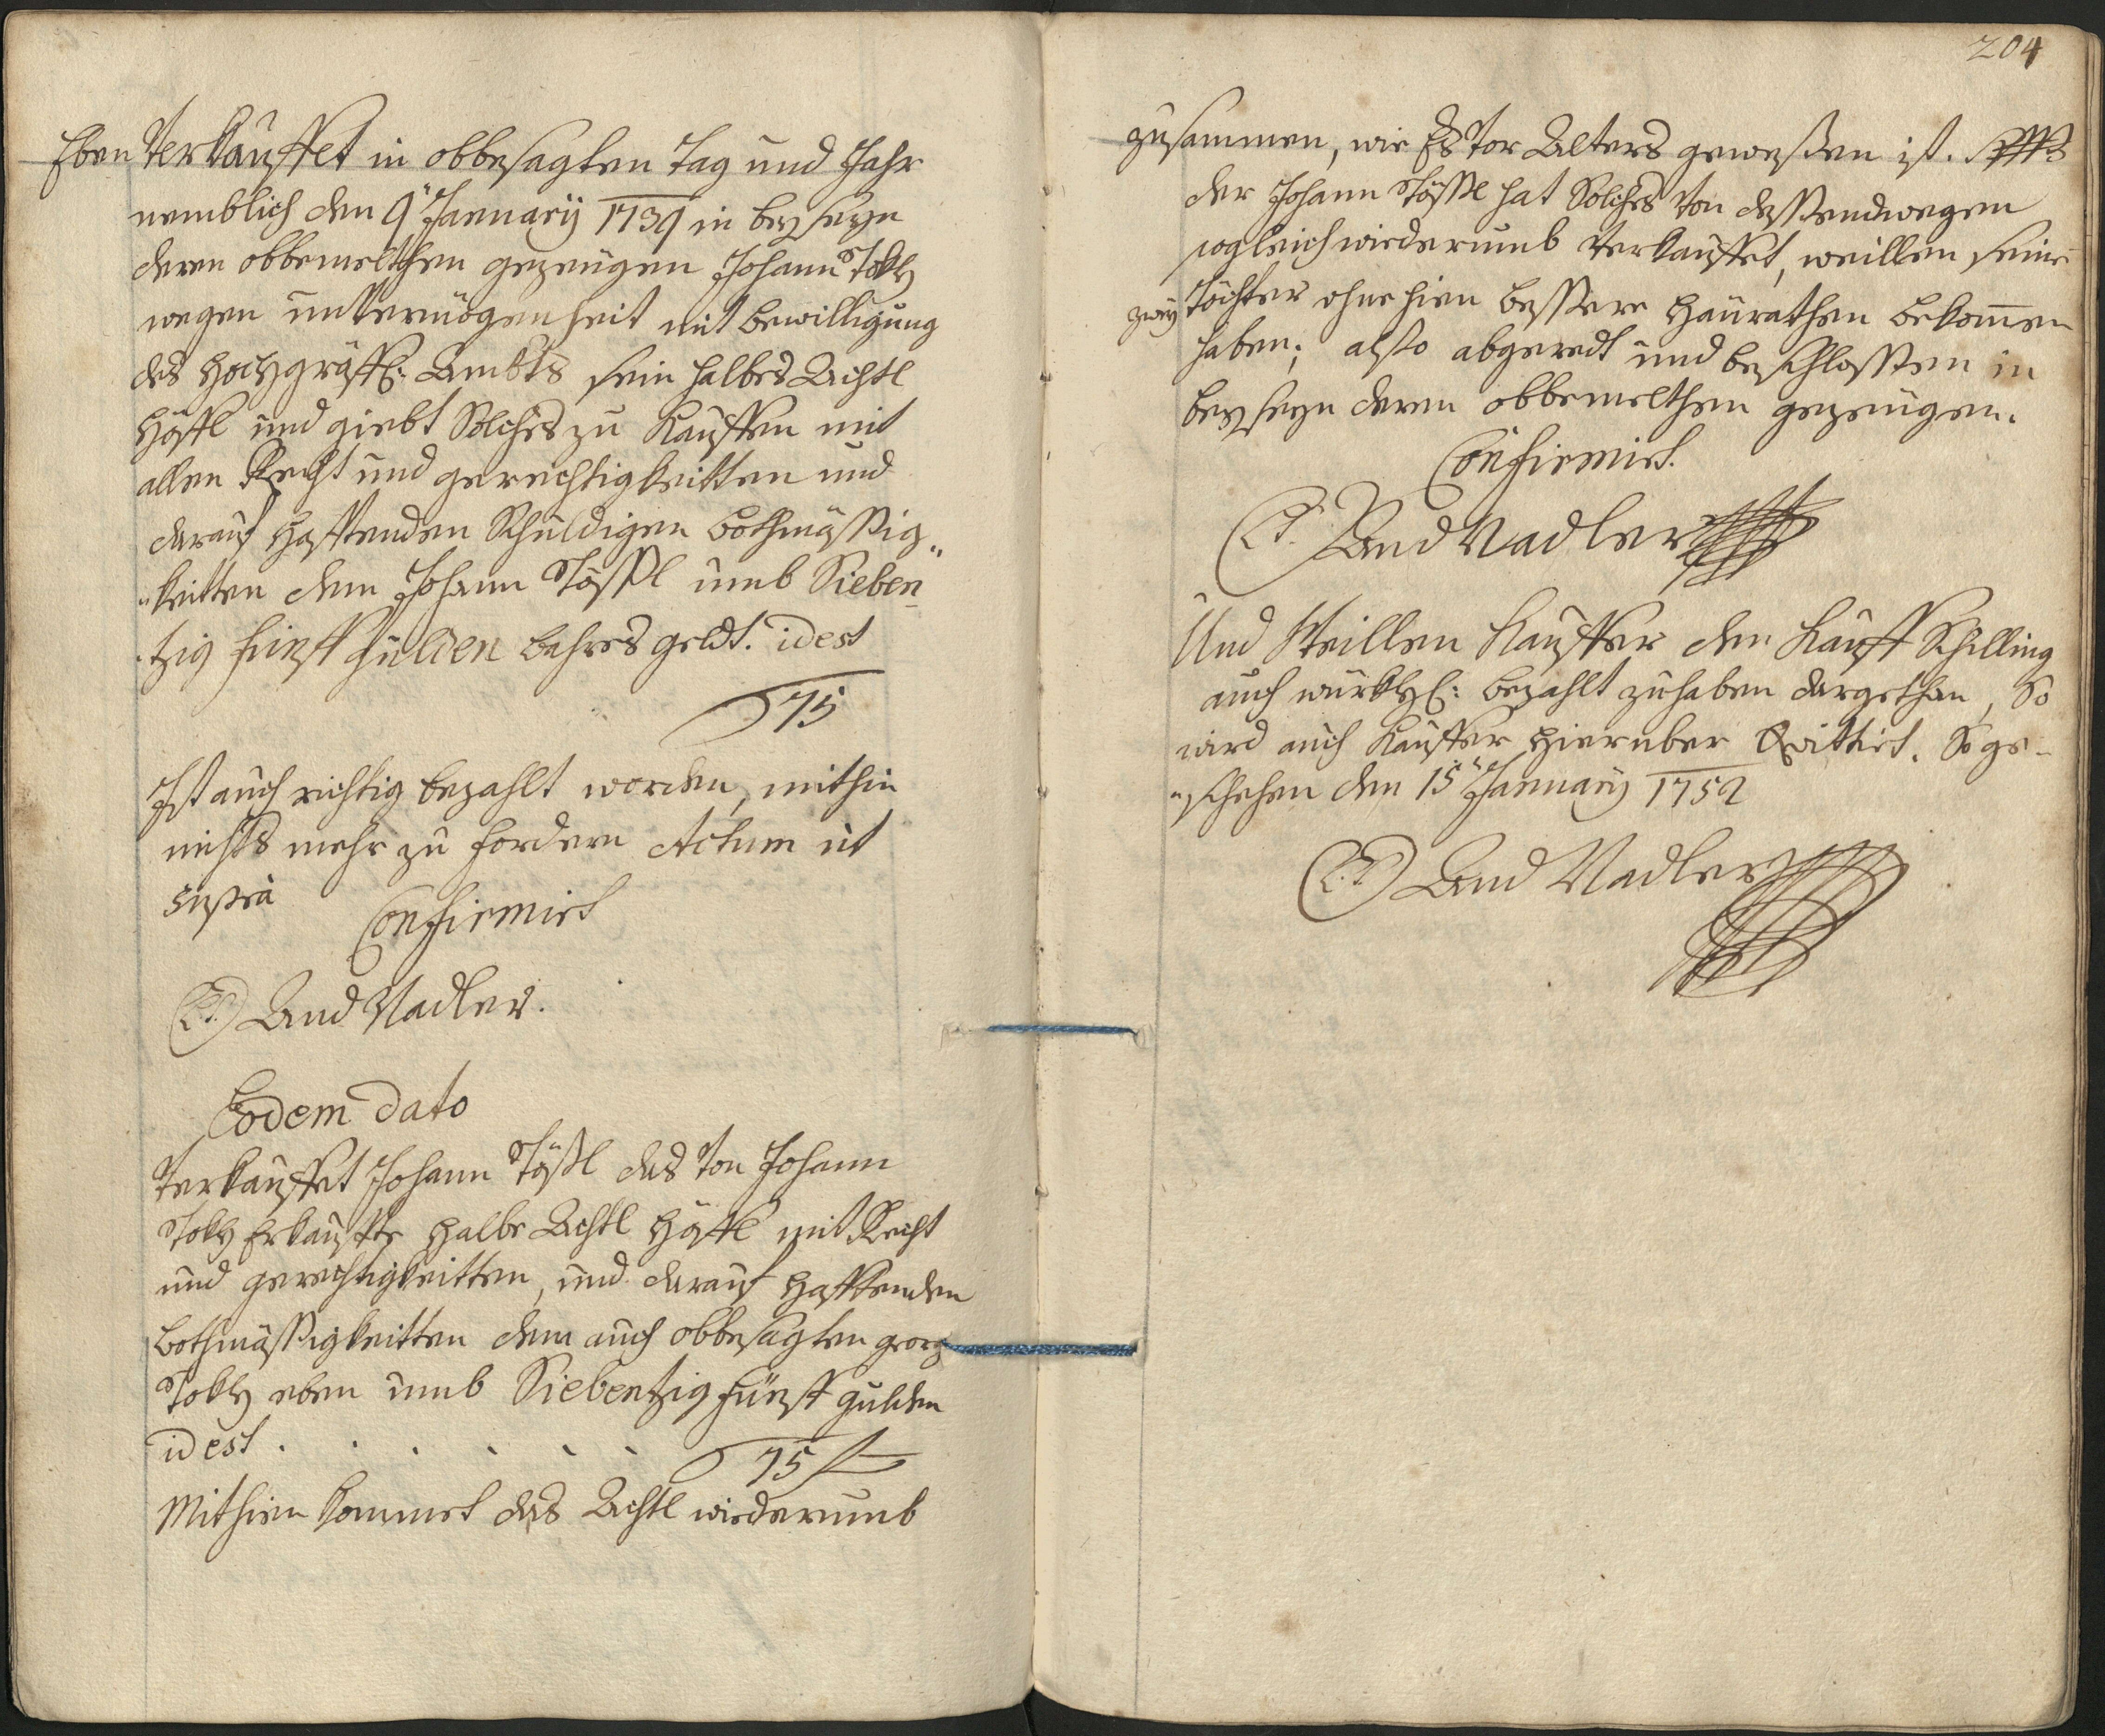 Eben Verkauffet in obbesagten Tag und Jahr
nemblich den 9" January 1739 in beyseyn
deren obbemelthen gezeügen Johann Tokh
wegen unvermögenheit mit bewilligung
des Hochgräffl: Ambts sein halbes Achtl
Höffl und giebt Solches zu Kauffen mit
allen Recht und gerechtigkeitten und
darauf hafftenden Schuldigen bothmässig„
„keitten dem Johann Tössl umb Sieben„
„tzig fünff gulden bahres geldt. idest
75
Ist auch richtig bezahlt worden, mithin
nichts mehr zu fordern Actum ut
supra
Confirmirt
And Nadler.
Eodem dato
Verkauffet Johann Tössl das von Johann
Tokh Erkauffte halbe Achtl Höffl mit Recht
und gerechtigkeitten, und darauf hafftenden
bothmässigkeitten dem auch obbesagten georg
Tokh eben umb Siebentzig fünff gulden
idest . . . . . . 75 f
Mithien kommet das Achtl wiederumb
204
zusammen, wie Es vor Alters geweßen ist.
der Johann Tössl hat Solches von dessendwegen
sogleich wiederumb verkauffet, weillen seine
zwey Töchter ohne hien bessere Haürathen bekommen
haben; alßo abgeredt und beschlossen in
beyseyn deren obbemelthen gezeügen.
Confirmirt.
And Nadler
Und Weillen Kauffer den Kauff Schilling
auch würkhl: bezahlt zuhaben dargethan, So
wird auch Kauffer hierüber Quittirt. So ge„
„schehen den 15" January 1752
And Nadler